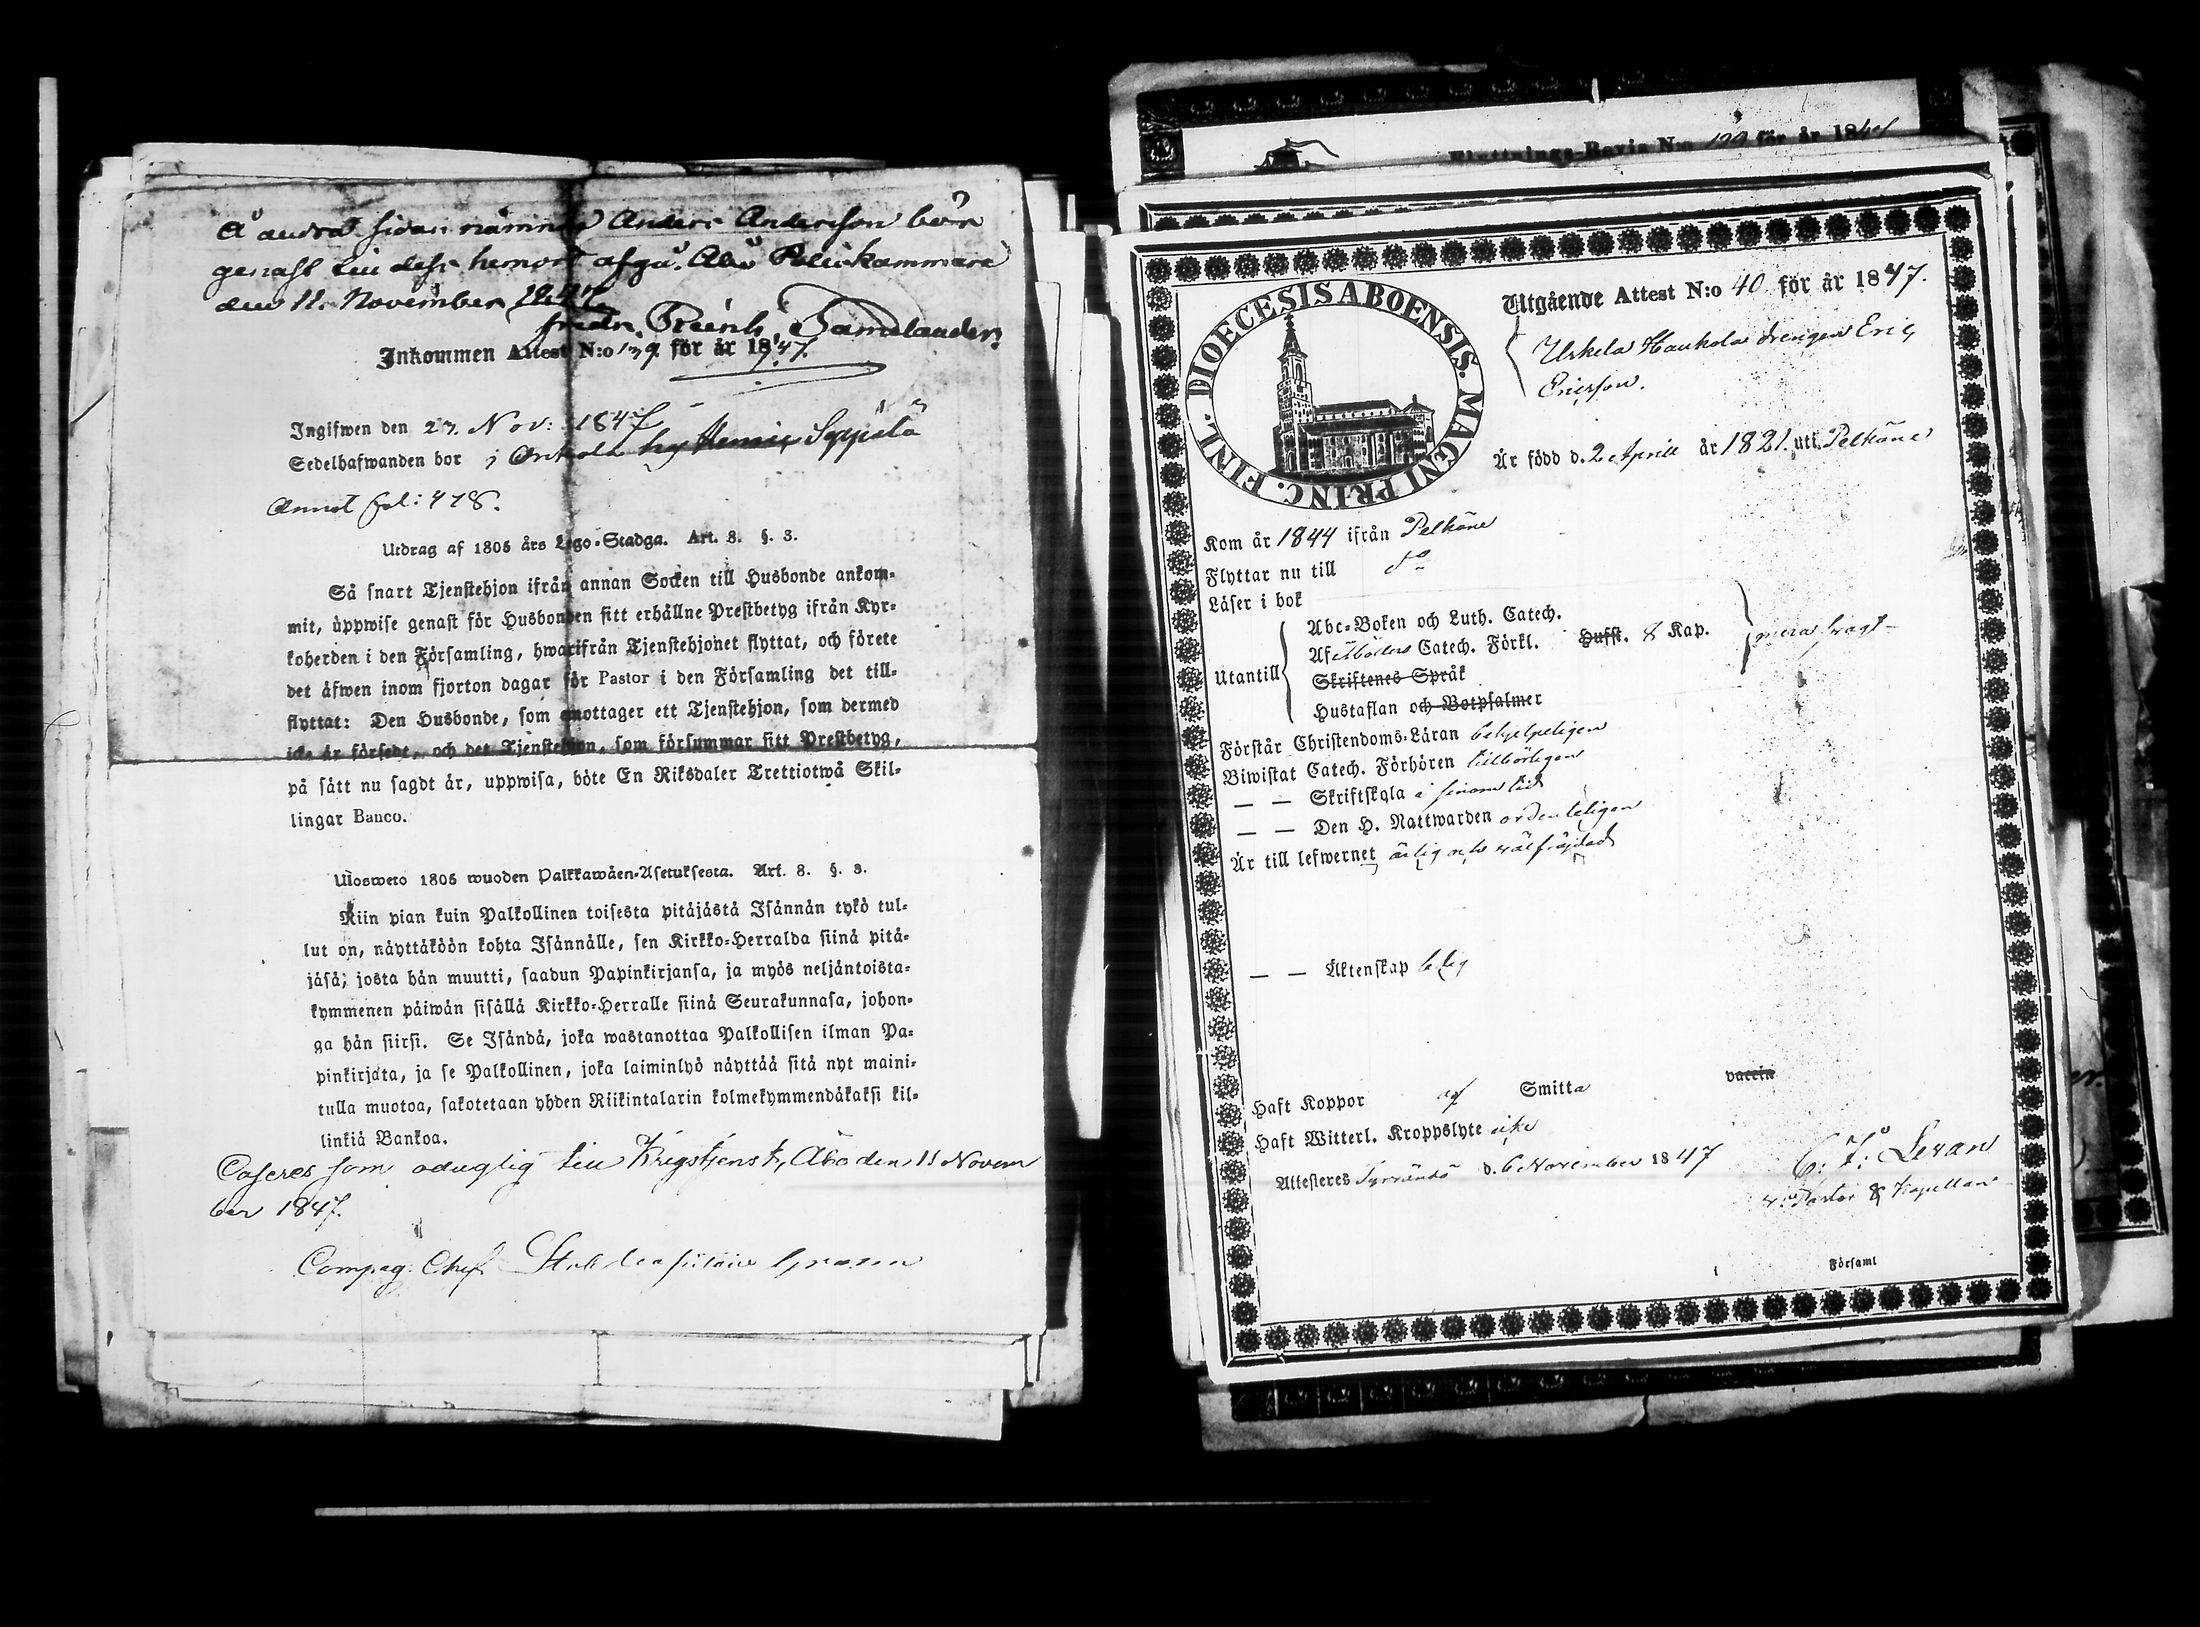 Å andra sidan nämnde Anders Andersson bör
genast till dess hemort afgå. Åbo Poliskammare
den 11. November 1847
Inkommen Attest N:o 139. för år 1847.
Ingifwen den 27. Nov: 1847
Sedelhafwanden bor i Onkola by Seppälä
Annot fol: 478.
Utdrag af 1805 års Lego-Stadga. Art. 8. §. 3.
Så snart Tjenstehjon ifrån annan Socken till Husbonde ankom-
mit, uppwise genast för Husbonden sitt erhållne Prestbetyg ifrån Kyr-
koherden i den Församling, hwarifrån Tjenstehjonet flyttat, och förete
det äfwen inom fjorton dagar för Pastor i den Församling det till-
flyttat: Den Husbonde, som emottager ett Tjenstehjon, som dermed
icke är försedt, och det Tjenstehjon, som försummar sitt Prestbetyg,
på sätt nu sagdt är, uppwisa, böte En Riksdaler Trettiotwå Skil-
lingar Banco.
Ulosweto 1805 wuoden Palkkawäen-Asetuksesta. Art. 8. §. 3.
Niin pian kuin Palkollinen toisesta pitäjästä Isännän tykö tul-
lut on, näyttäköön kohta Isännälle, sen Kirkko-Herralda siinä pitä-
jäsä, josta hän muutti, saadun Papinkirjansa, ja myös neljäntoista-
kymmenen päiwän sisällä Kirkko-Herralle siinä Seurakunnasa, johon-
ga hän siirsi. Se Isändä, joka wastanottaa Palkollisen ilman Pa-
pinkirjata, ja se Palkollinen, joka laiminlyö näyttää sitä nyt maini-
tulla muotoa, sakotetaan yhden Riikintalarin kolmekymmendäkaksi kil-
linkiä Bankoa.
Caseres som oduglig till Krigstjenst, Åbo den 11 Novem
ber 1847.
Compag: Chef.
Flyttnings-Bevis N:o för år 18
DIOECESIS ABOENSIS. MAGNI PRINC. FINL.
Utgående Attest N:o 40 för år 1847.
Urkela Haukola drengen Eric
Ericsson.
Är född d. 2 Aprill år 1821. uti Pelkäne
Kom år 1844 ifrån Pelkäne
Flyttar nu till do
Läser i bok
Utantill
Abc-Boken och Luth. Catech.
Af Möllers Catech. Förkl. Hufst. 8 Kap.
Skriftenes Språk
Hustaflan och Botpsalmer
mera svagt
Förstår Christendoms-Läran behjelpeligen
Biwistat Catech. Förhören tillbörligen
— — Skriftskola i sinom tid
— — Den H. Nattwarden ordenteligen
Är till lefwernet ärlig och wälfräjdad
— — Äktenskap ledig
Haft Koppor af Smitta vaccin
Haft Witterl. Kroppslyte icke
Attesteres Tyrväntö d. 6 November 1847
C: F: Levan
v: Pastor & Kapellan
Församl